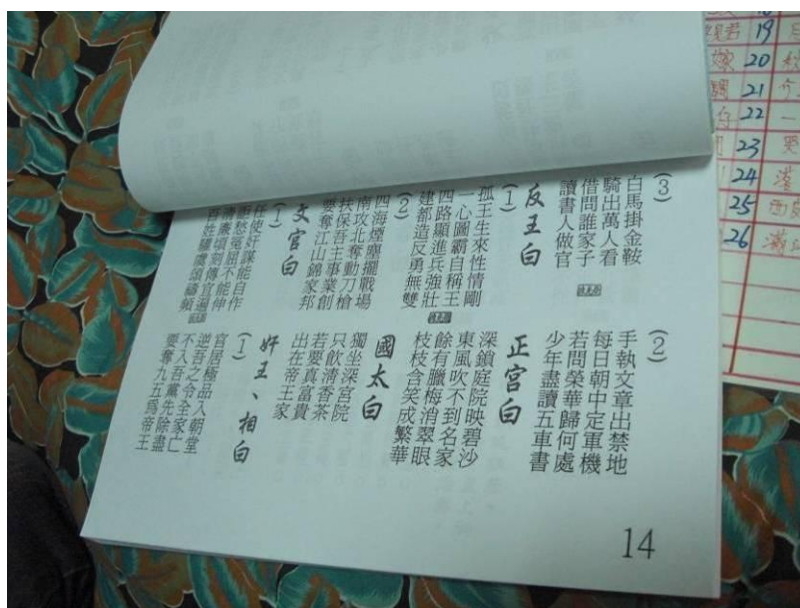 (3)
白馬掛金鞍
騎出萬人看
借問誰家子
讀書人做官
反王白
(1)
孤王生來性情剛
一心圖霸自稱王
四路顯進兵強壯
建都造反勇無雙
(2)
四海煙塵擺戰場
南攻北奪動刀槍
扶保吾主事業創
要奪江山錦家邦
文官白
(1)
任使奸謀能自作
愁冤屈不能伸
頃刻傳宜遍
百姓
(2)
手執文章出禁地
每日朝中定軍機
若問榮華歸何處
少年盡讀五車書
正宮白
深鎖庭院映碧沙
東風吹不到名家
餘有臘梅消翠眼
枝枝含笑成繁華
國太白
獨坐深宮院
只飲清香茶
若要真富貴
出在帝王家
奸王、相白
(1)
官居極品入朝堂
逆吾之令全家亡
不入吾黨先除盡
要奪九五為帝王
14
19
20
21
22 一
23
24
25
26